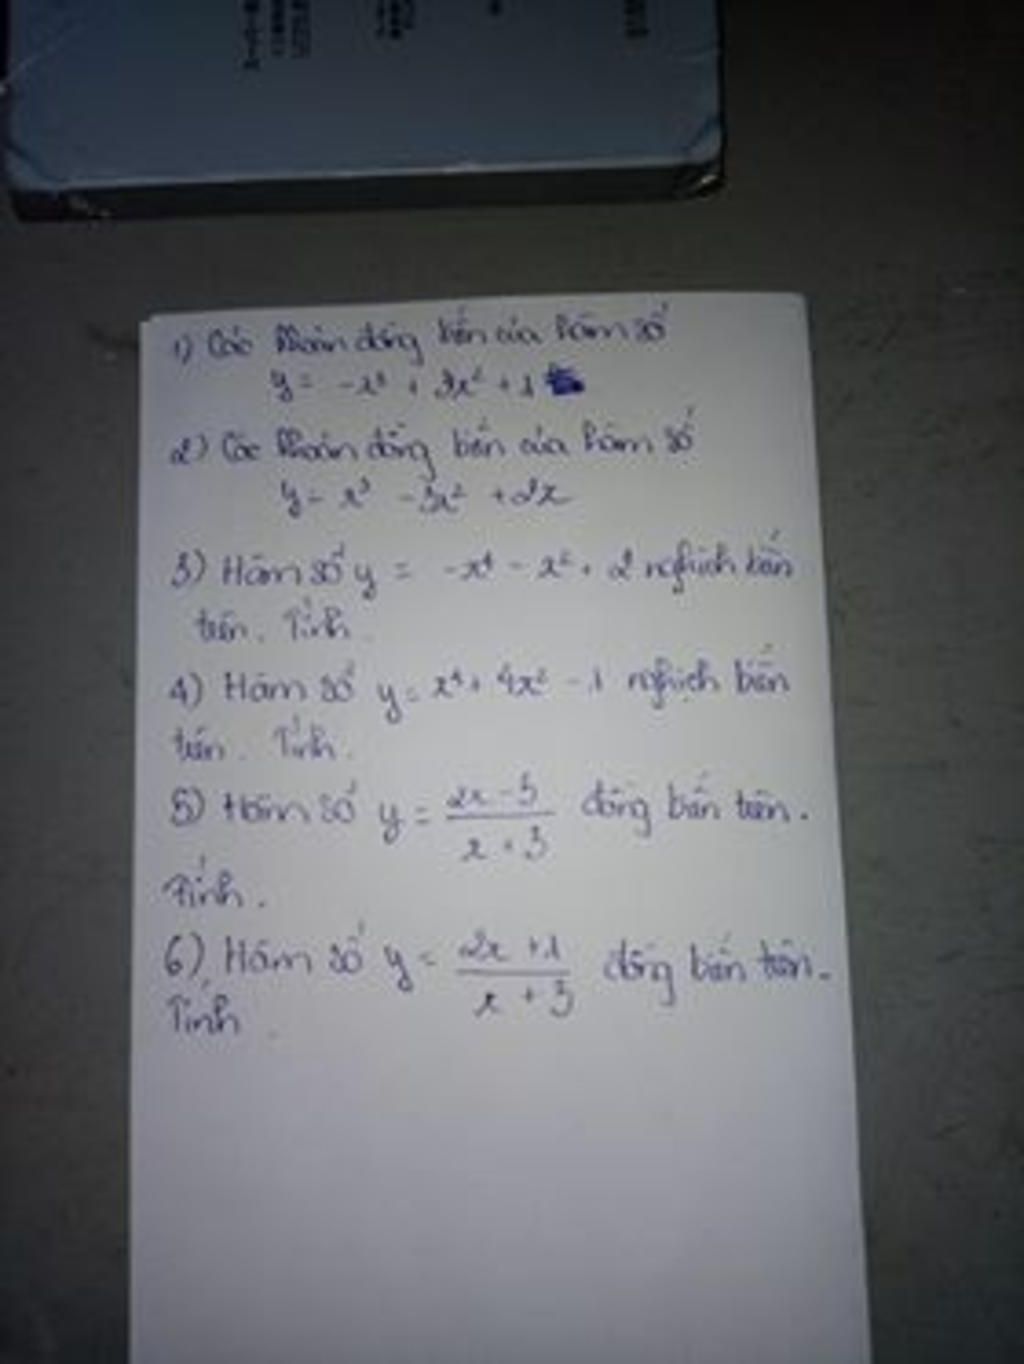 1) Các khoản đồng biến của hàm số
y = -x³ + 3x² + 1
2) Các khoản đồng biến của hàm số
y = x³ - 3x² + 2x
3) Hàm số y = -x⁴ - x² + 2 nghịch biến
trên. Tính.
4) Hàm số y = x⁴ + 4x² - 1 nghịch biến
trên. Tính.
5) Hàm số y = (2x - 5)/(x + 3) đồng biến trên.
Tính.
6) Hàm số y = (2x + 1)/(x + 3) đồng biến trên.
Tính.